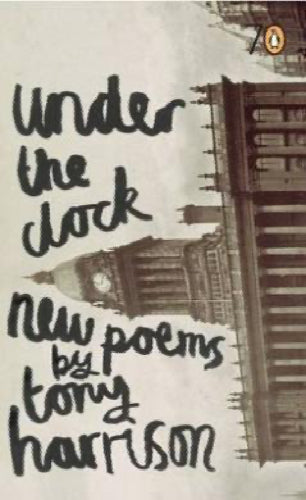 under
the
clock
new poems
by
tony
harrison
70